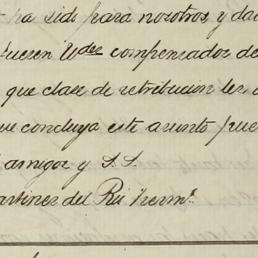 ha sido para nosotros, y dad
fuesen Udes compensados de
que clase de retribucion les
que concluya este asunto, pue
amigos y S. S.
artinez del Rio herms.